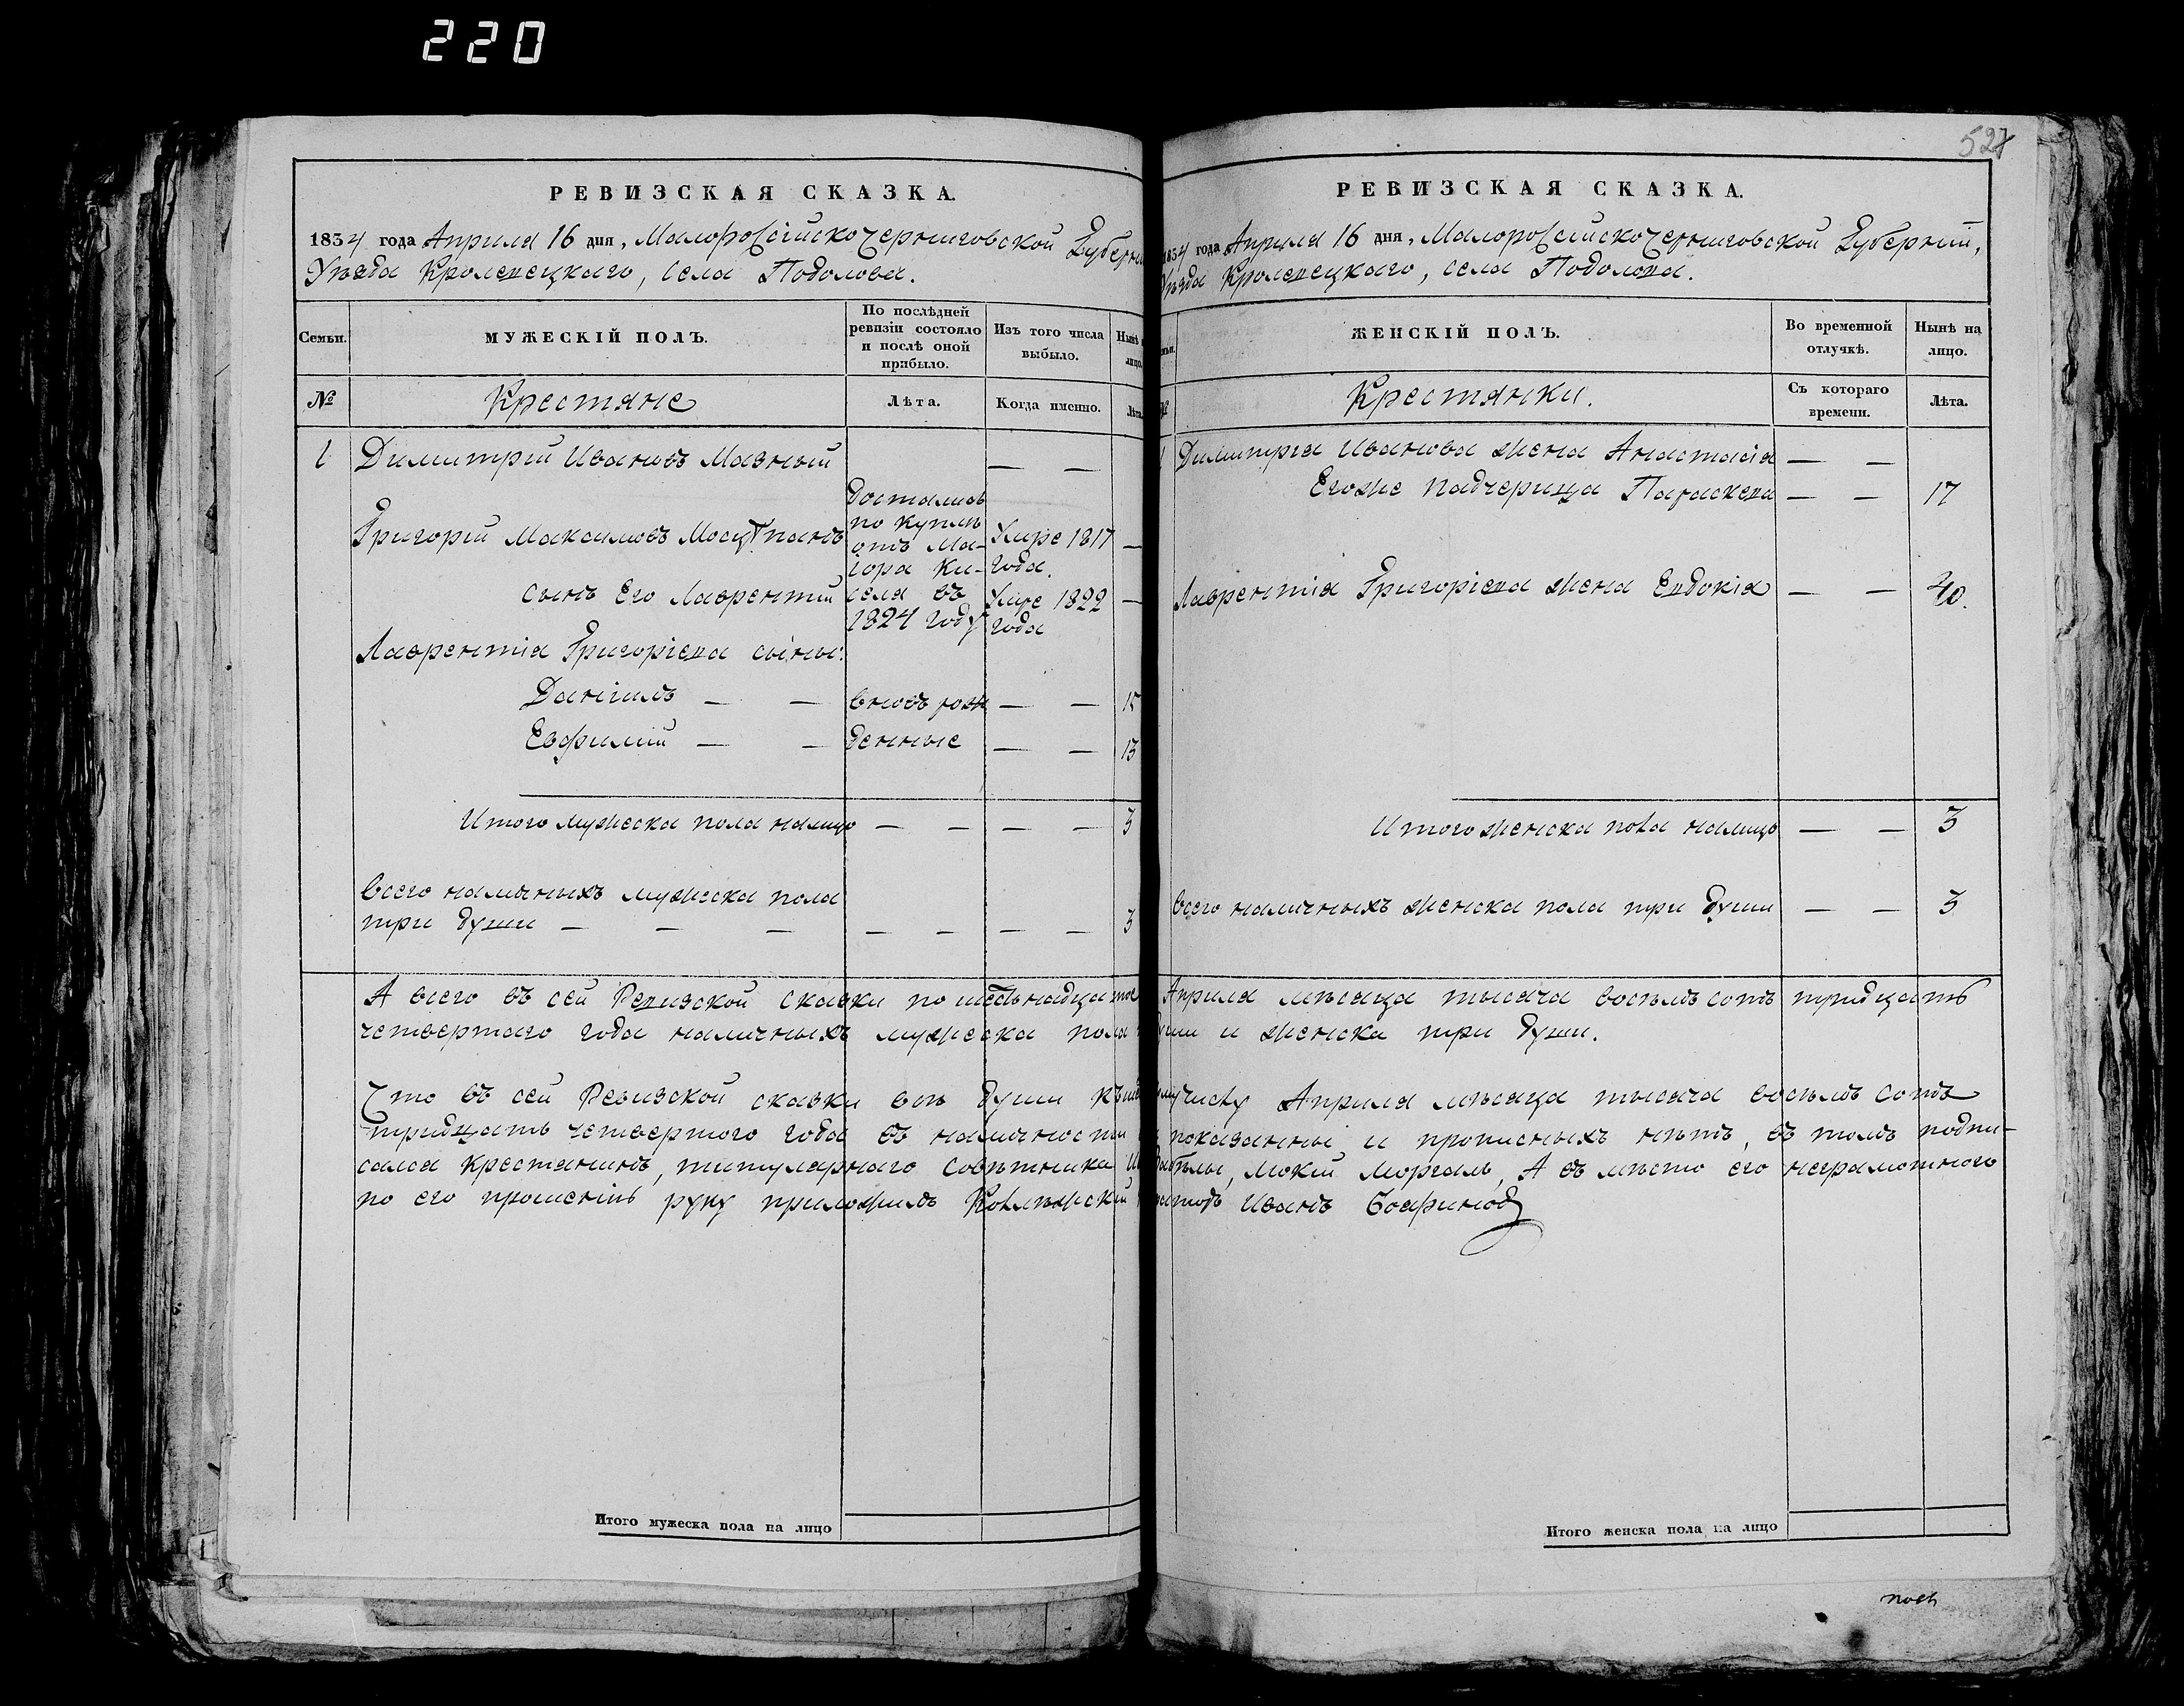 220
527
РЕВИЗСКАЯ СКАЗКА.
1834 года Апреля 16 дня, Малороссійскочерниговской Губерні
Уѣзда Кролевецкаго, села Подолова.
Семьи.
МУЖЕСКІЙ ПОЛЪ.
По послѣдней
ревизіи состояло
и послѣ оной
прибыло.
Изъ того числа
выбыло.
Нынѣ
лицо.
№
Крестяне
Лѣта.
Когда именно.
Лѣта.
1 Димитрій Ивановъ Мазный — —
Достались
по куплѣ
отъ Ма-
іора Ки-
селя въ
1824 году
Григорій Максимовъ Умре 1817 —
года.
сынъ Его Лаврентій Умре 1822 —
года
Лаврентія Григоріева сыны:
Даніилъ — — вновь рож — — 15
Евфимій — — денные — — 13
Итого мужеска пола налицо — — — — 3
Всего наличныхъ мужеска пола
три души — — — — — — — 3
РЕВИЗСКАЯ СКАЗКА.
1834 года Апреля 16 дня, Малороссійскочерниговской Губерніи,
Уѣзда Кролевецкаго, села Подолова.
ЖЕНСКІЙ ПОЛЪ.
Во временной
отлучкѣ.
Нынѣ на
лицо.
Крестянки.
Съ котораго
времени.
Лѣта.
Димитрія Иванова жена Анастасія — —
Егоже падчерица Параскева — — 17
Лаврентія Григоріева жена Евдокія — — 40.
Итого женска пола налицо — — 3
Всего наличныхъ женска пола три души — — 3
А всего въ сей Ревизской сказки по Апреля мѣсяца тысяча восемъ сотъ тридцать
четвертаго года наличныхъ мужеска пола и женска три души.
Что въ сей Ревизской сказки всѣ души Апреля мѣсяца тысяча восемъ сотъ
тридцать четвертого года въ наличности показанны и прописныхъ нѣтъ, въ томъ подпи-
сался Крестянинъ, титулярнаго совѣтника Мокій Моргаль, А въ мѣсто его неграмотного
по его прошенію руку приложилъ Иванъ
Итого мужеска пола на лицо
Итого женска пола на лицо